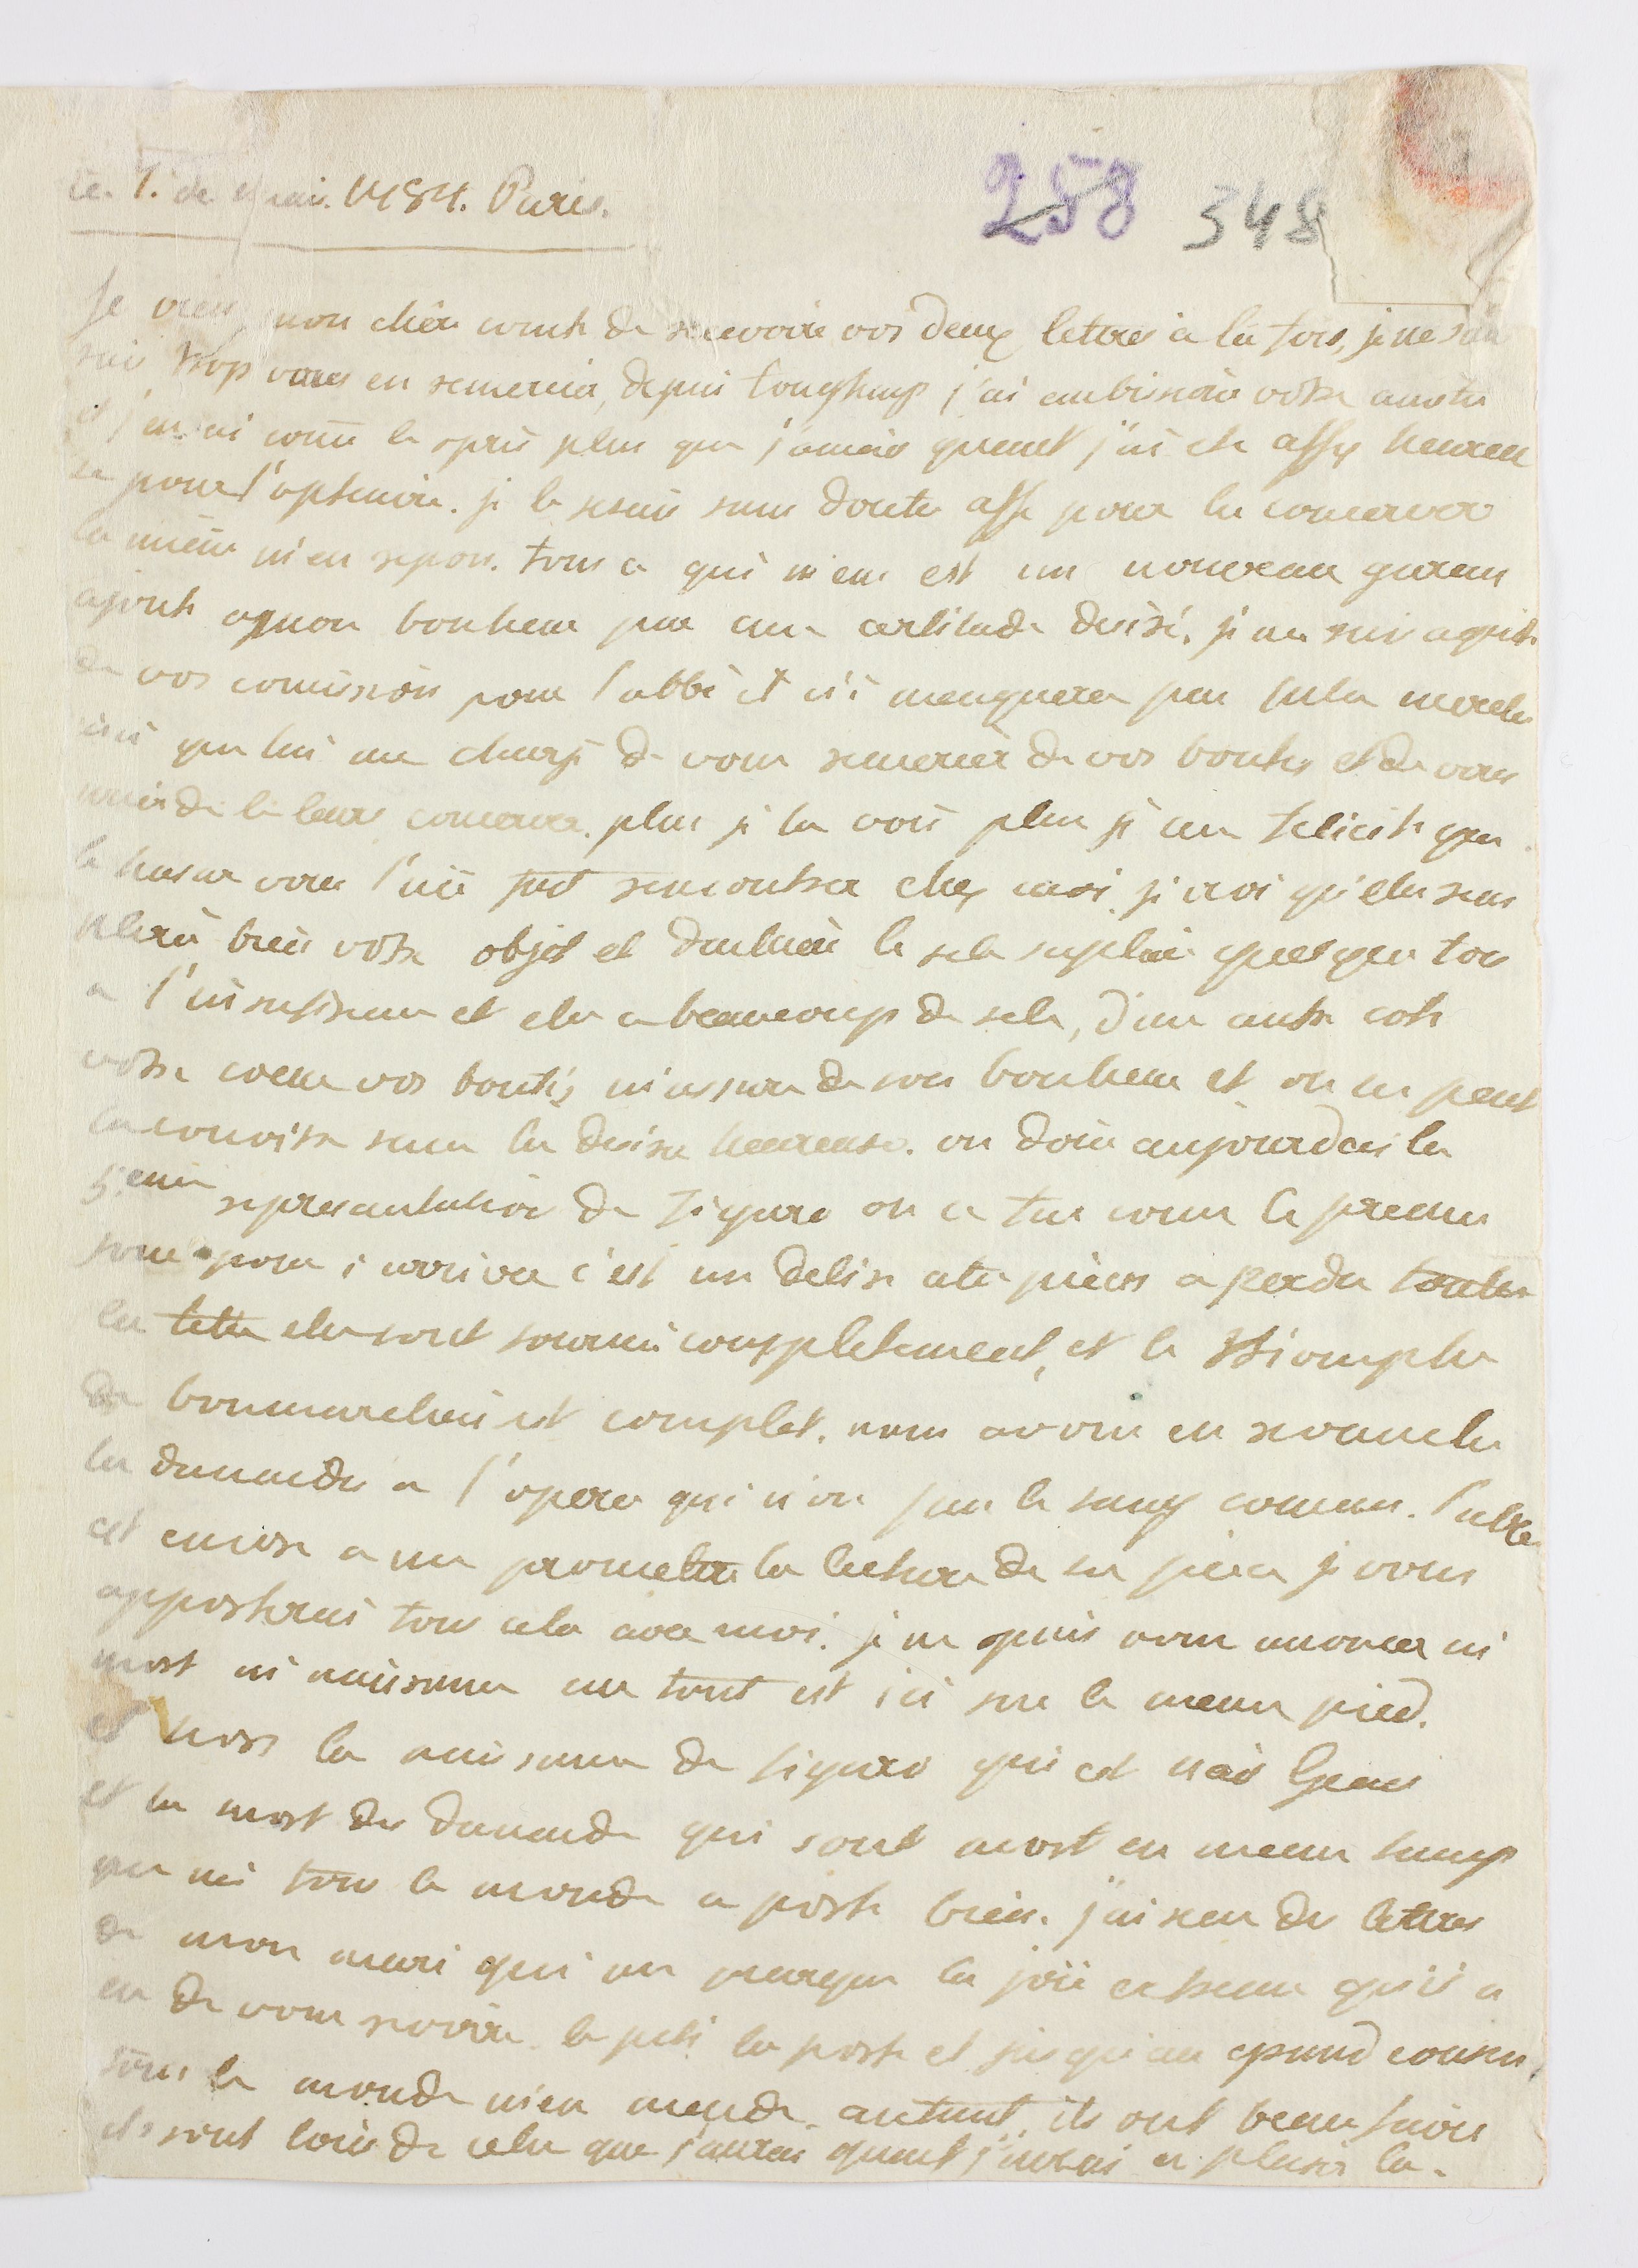 ce 1. de may. 1784. Paris.
258 348
je vien, mon chèr comte de recevoire vos deux lettres a la fois, je ne sau
rais trop vous en remercier, depui longtemp j'ai embisioné votre amitie
et j'en ai conu le prix plus que j'amais quent j'ai ete assez heureu
se pour l'optenire. je le serais sans doute asse pour la conserver
la miene m'en repon. tous ce qui m'en est un nouveau garan
ajoute a mon bonheur par une certitude desiré. je me suis aquité
de vos comission pour l'abbé et n'i menquerer pas
ausi que lui me charge de vous remercier de vos bontes et de vous
prier de le leur conserver. plus je la vois plus je me felicite que
le hasar vous l'aie fait rencontrer chez moi. je croi qu'elle ren
plira bien votre objet et d'ailleur le zele suplée quelque fois
a l'insufisance et elle a beaucoup de zele, d'un autre coté
votre coeur vos bontés m'assure de son bonheur et on ne peut
la conoitre sans la desirer heureuse. on done aujourdui la
5.eme representation de figaro on ce tue come le premier
jour pour i arriver c'est un delire cete pieces a perdu toutes
les tete eles sont tournée compleltement, et le triomphe
de bonmarchais est complet. nous avons en revenche
les danaides a l'opera qui n'on pas le sens comun. l'abbé
est encore a me prometre la lecture de sa piece je vous
apporterais tous cela avec moi. je ne puis vous anoncer ni
mort ni naissance car tout est ici sur le meme pied.
et hors la naissance de figaro qui est née Geans
et la mort des danaide qui sont mort en meme temp
que né tous le monde ce porte bien. j'ai reçu des lettres
de mon mari qui me marque la joie extreme qu'il a
eu de vous revoir. le petit la poste et jusqu'au grand cousin,
tous le monde m'en mende autant, ils ont beau faire
ils sont loin de cele que j'aurai quent j'aurai ce plaisir la.